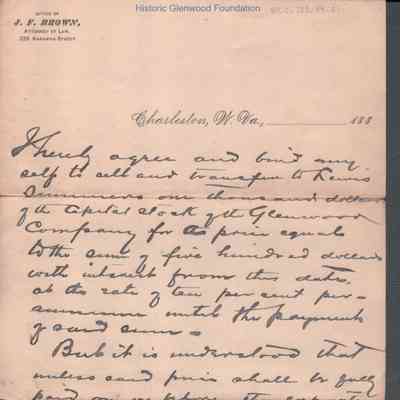 Historic Glenwood Foundation
OFFICE OF
J. F. BROWN,
ATTORNEY AT LAW,
Charleston, W. Va., 188
I hereby agree and bind my
self to sell and transfer to Lewis
Summers one thousand dollars
of the Capital stock of the Glenwood
Company for the price equal
to the sum of five hundred dollars
with interest from this date,
at the rate of ten per cent per
annum until the payment
of said sum
But it is understood that
unless said price shall be fully
paid on or before the